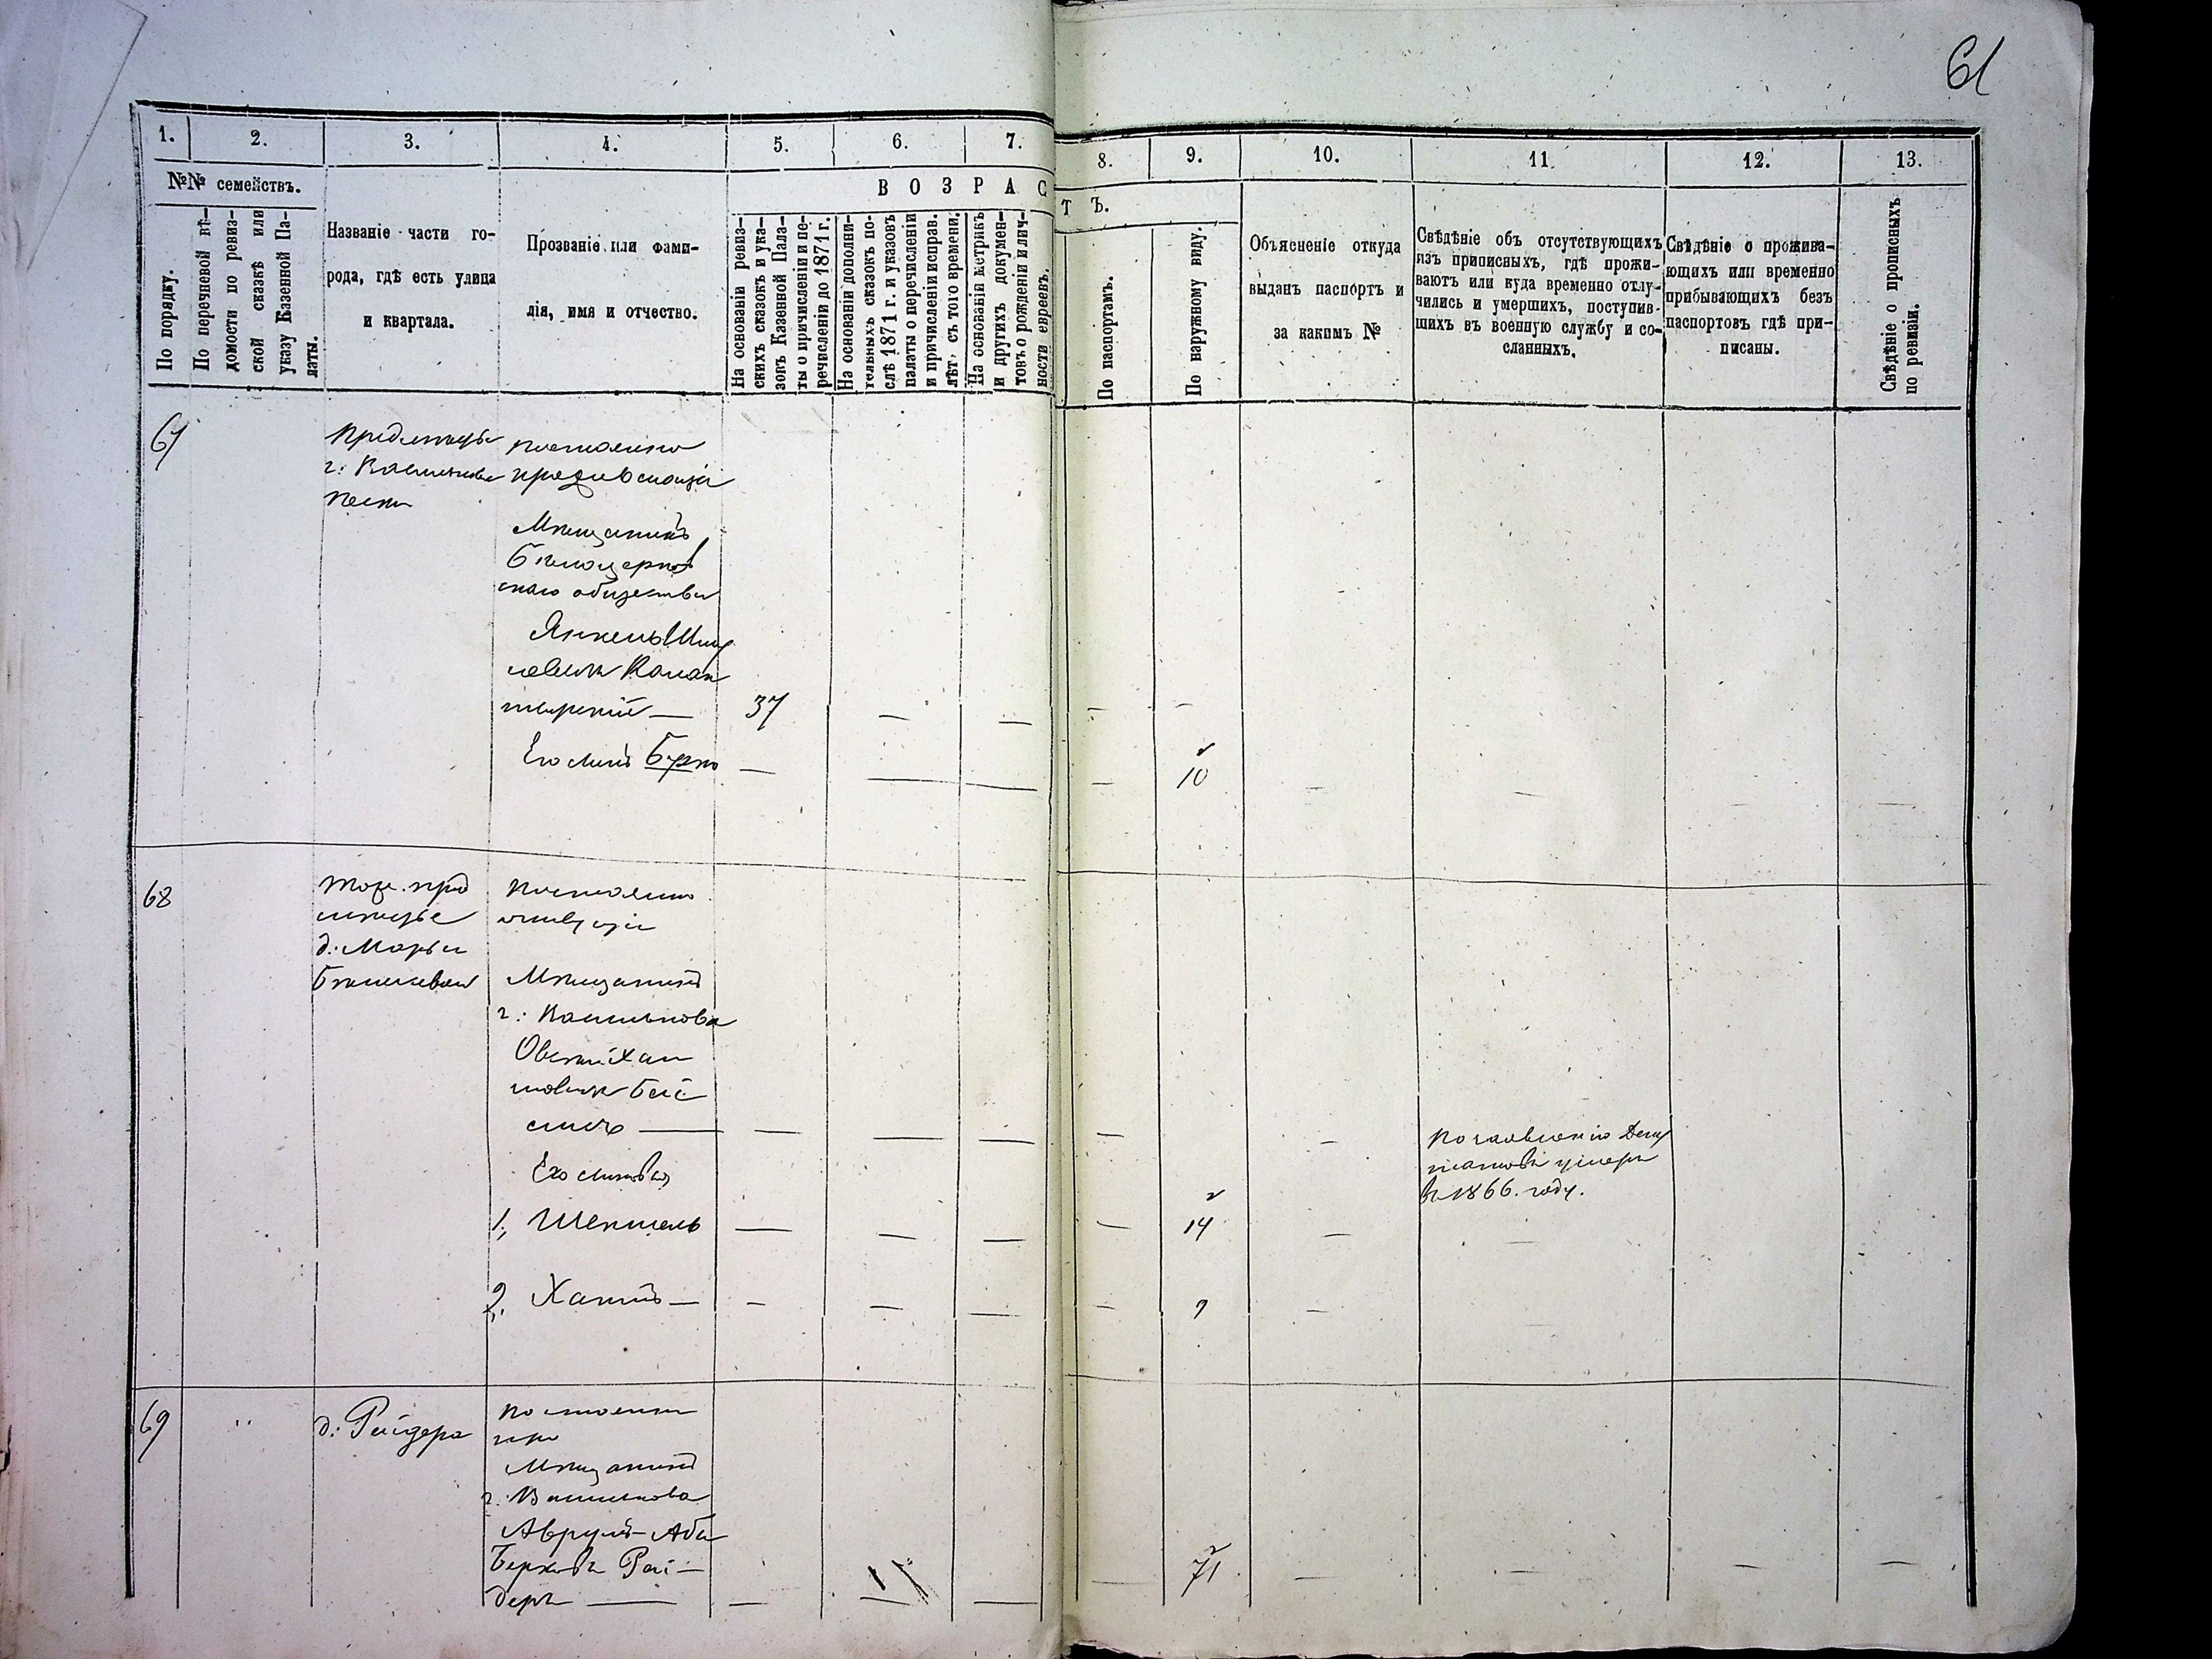 61
1. 2. 3. 4. 5. 6. 7. 8. 9. 10. 11. 12. 13.
№№ семействъ.
ВОЗРАСТЪ.
По порядку.
По перечневой вѣ-
домости по ревиз-
ской сказкѣ или
указу Казенной Па-
латы.
Названіе части го-
рода, гдѣ есть улица
и квартала.
Прозваніе или фами-
лія, имя и отчество.
На основаніи ревиз-
скихъ сказокъ и ука-
зовъ Казенной Пала-
ты о причисленіи и пе-
речисленіи до 1871 г.
На основаніи дополни-
тельныхъ сказокъ по-
слѣ 1871 г. и указовъ
палаты о перечисленіи
и причисленіи исправ.
лѣт. съ того времени.
На основаніи метрикъ
и другихъ докумен-
товъ о рожденіи и лич-
ности евреевъ.
По паспортамъ.
По наружному виду.
Объясненіе откуда
выданъ паспортъ и
за какимъ №
Свѣдѣніе объ отсутствующихъ
изъ приписныхъ, гдѣ прожи-
ваютъ или куда временно отлу-
чились и умершихъ, поступив-
шихъ въ военную службу и со-
сланныхъ.
Свѣдѣніе о прожива-
ющихъ или временно
прибывающихъ безъ
паспортовъ гдѣ при-
писаны.
Свѣдѣніе о прописныхъ
по ревизіи.
67
Предмѣстье
г: Василькова
Пески
постоянно
проживающій
Мѣщанинъ
Бѣлоцерков
скаго общества
Янкель Шму
левичъ Канан
тырскій — 37 — — — —
Его сынъ Берко — — — — 10 — — — —
68
Тоже пред
мѣстье
д: Марьи
постоянно
Мѣщанинъ
г: Василькова
Овсей Хаи
мовичъ Бей
— — — — — —
по заявленію Депу
татовъ умеръ
въ 1866. году.
Его сыновья
1, Шепшель — — — — 14 — —
2, Хаимъ — — — — — 9 — —
69 " д: Рейдера
постоянно
Мѣщанинъ
г. Василькова
Аврумъ-Аба
Берковъ Рей-
деръ — — — — — 71 — — — —